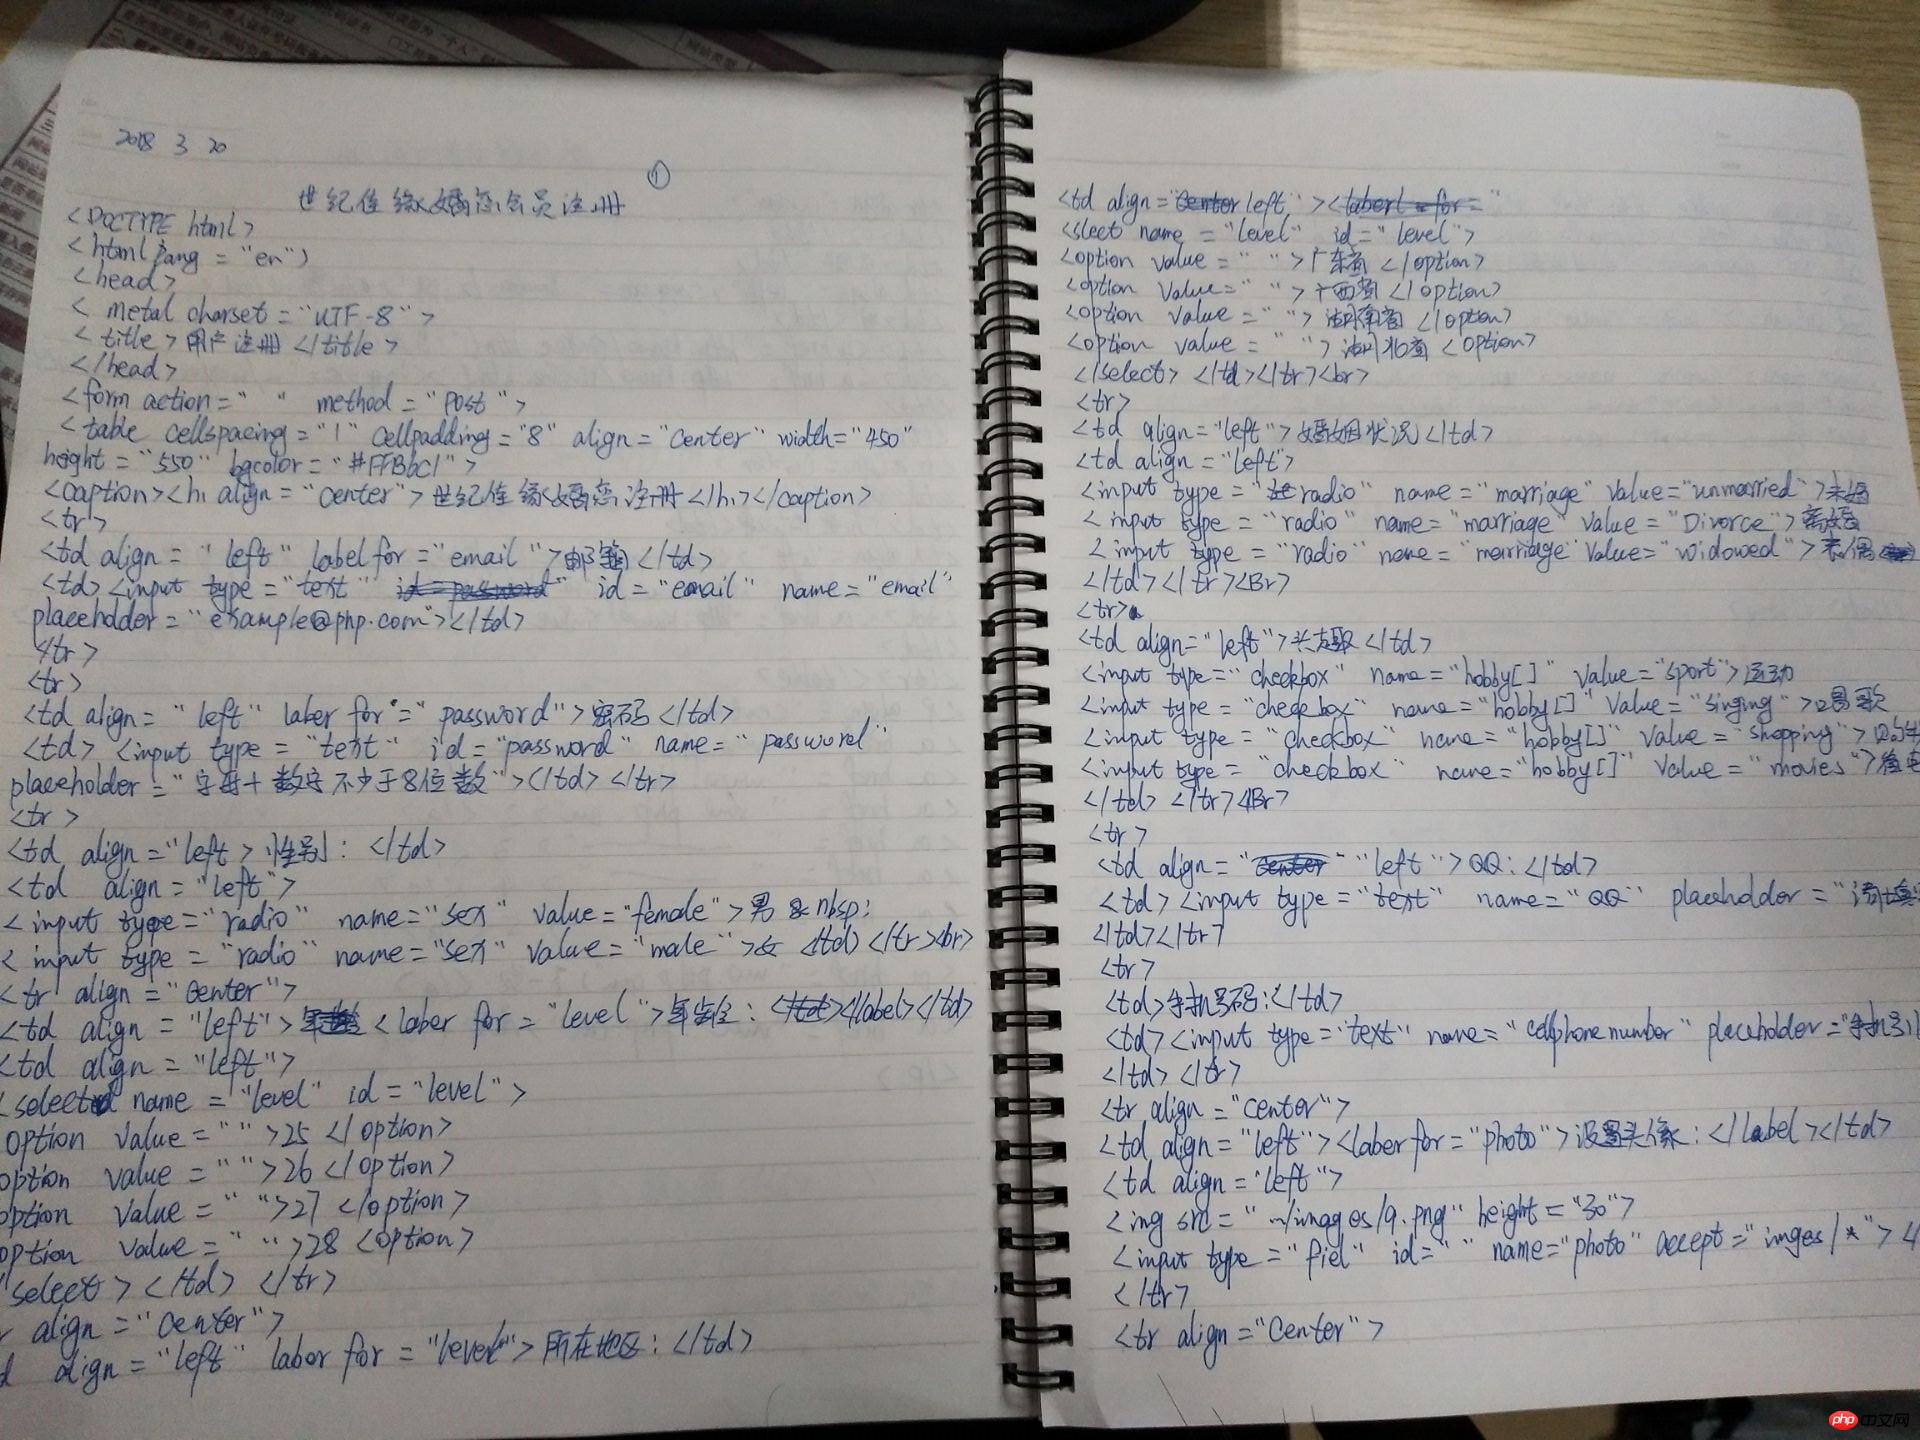 2018 3 20
①
世纪佳缘婚恋会员注册
<DOCTYPE html>
<html lang = "en">
<head>
< metal charset = "UTF-8" >
< title > 用户注册 </title >
</head>
<form action = " " method = "post" >
< table cellspacing = "1" cellpadding = "8" align = "center" width = "450"
height = "550" bgcolor = "#FFB6C1" >
<caption><h1 align = "center" > 世纪佳缘婚恋注册 </h1></caption>
<tr>
<td align = "left" label for = "email" > 邮箱 </td>
<td> <input type = "text" id = "email" name = "email"
placehdder = "example@php.com"></td>
</tr>
<tr>
<td align = "left" laber for = "password" > 密码 </td>
<td> <input type = "text" id = "password" name = "password"
placeholder = "字母+数字不少于8位数"></td> </tr>
<tr >
<td align = "left > 性别 : </td>
<td align = "left">
<input type = "radio" name = "sex" value = "female" > 男 & nbsp;
< input type = "radio" name = "sex" value = "male" > 女 </td> </tr> 
<tr align = "center">
<td align = "left"> < laber for = "level" > 年龄 : </label></td>
<td align = "left">
<select name = "level" id = "level" >
option value = " " >25 </ option>
option value = " " >26 </option>
option value = " " >27 </option>
option value = " " >28 <option>
select > </td> </tr>
align = "center">
align = "left" laber for = "level" > 所在地区 : </td>
<td align = "left" >
<sleet name = "level" id = "level">
<option value = " " > 广东省 </option>
<option value = " " > 广西省 </option>
<option value = " " > 湖南省 </option>
<option value = " " > 湖北省 <option>
</select> </td></tr> 
<tr>
<td align = "left" > 婚姻状况 </td>
<td align = "left">
<input type = "radio" name = "marriage" value = "unmarried" > 未婚
< input type = "radio" name = "marriage" value = "Divorce" > 离婚
< input type = "radio" name = "marriage" value = "widowed" > 丧偶
</td></tr> 
<tr>
<td align = "left" > 兴趣 </td>
<input type = "checkbox" name = "hobby[]" value = "sport" > 运动
<input type = "checkbox" name = "hobby[]" value = "singing" > 唱歌
<input type = "checkbox" name = "hobby[]" value = "shopping" >
<input type = "checkbox" name = "hobby[]" value = "movies" >
</td> </tr> 
<tr >
<td align = "left" > QQ : </td>
<td> <input type = "text" name = "QQ" placeholder = "请
</td></tr>
<tr>
<td> 手机号码 : </td>
<td> <input type = "text" name = "cellphone number" placeholder = "手机号
</td> </tr>
<tr align = "center">
<td align = "left"> <laber for = "photo" > 设置头像 : </label></td>
<td align = "left">
<img src = "../images/9.png" height = "30">
<input type = "fiel" id = " " name = "photo" accept = "imges/*" >
</tr>
<tr align = "center" >
php 中文网